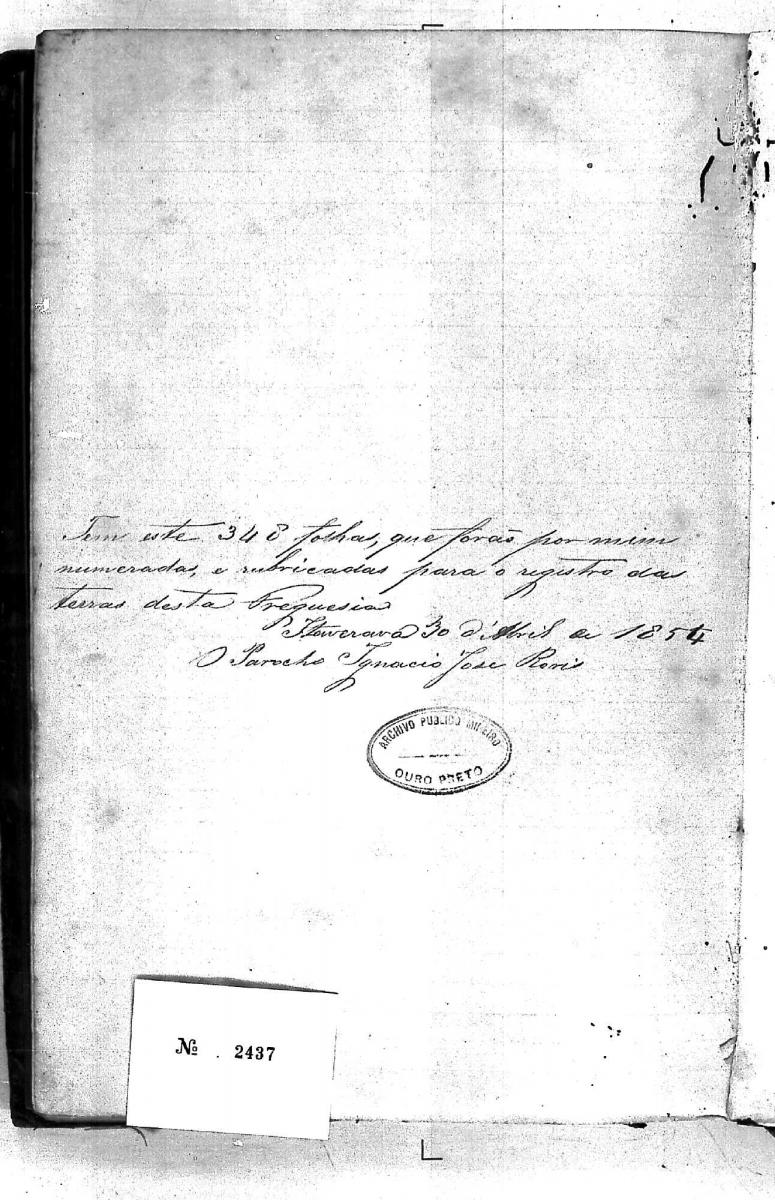 Tem este 348 folhas, que forão por mim
numeradas, e rubricadas para o registro das
terras desta Freguesia
Itaverava 30 d'Abril de 1854
O Parocho Ignacio José
ARCHIVO PUBLICO MINEIRO
OURO PRETO
№ 2437